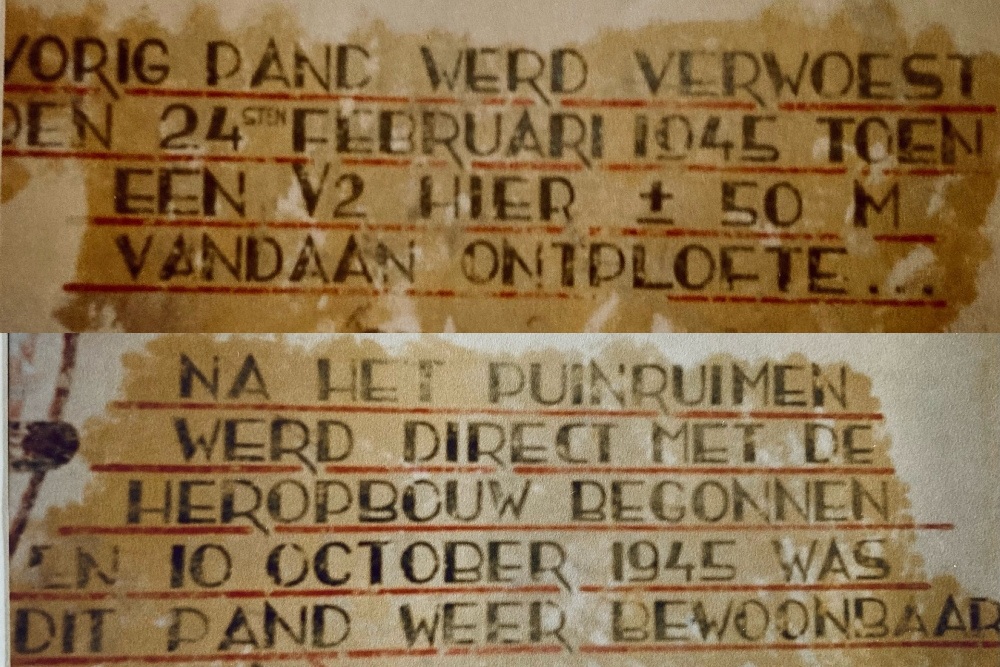 VORIG PAND WERD VERWOEST
DEN 24STEN FEBRUARI 1945 TOEN
EEN V2 HIER ± 50 M
VANDAAN ONTPLOFTE...
NA HET PUINRUIMEN
WERD DIRECT MET DE
HEROPBOUW BEGONNEN
EN 10 OCTOBER 1945 WAS
DIT PAND WEER BEWOONBAAR